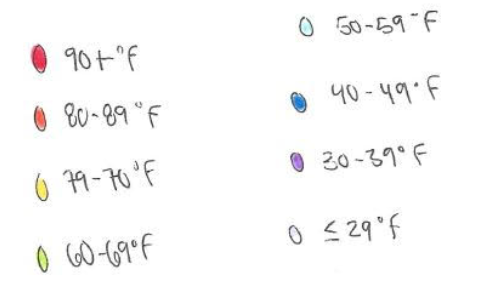 90+°F
80-89°F
79-70°F
60-69°F
50-59°F
40-49°F
30-39°F
≤29°F